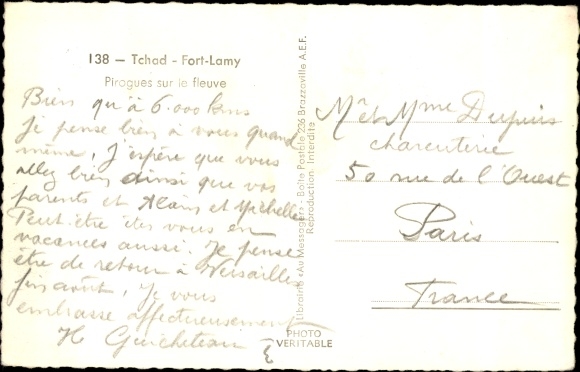 138 — Tchad - Fort-Lamy
Pirogues sur le fleuve
Bien qu'à 6.000 kms
Je pense bien à vous quand
même, J'espère que vous
allez bien ainsi que vos
parents et Alain et Michelle
Peut.être êtes vous en
vacances aussi. Je pense
être de retour à Versailles
fin août, Je vous
embrasse affectueusement
H Guicheteau
Librairie «Au Messager» - Boîte Postale 236 Brazzaville A.E.F.
Reproduction Interdite
PHOTO
VERITABLE
Mr et Mme Dupuis
charcuterie
50 rue de l'Ouest
Paris
France